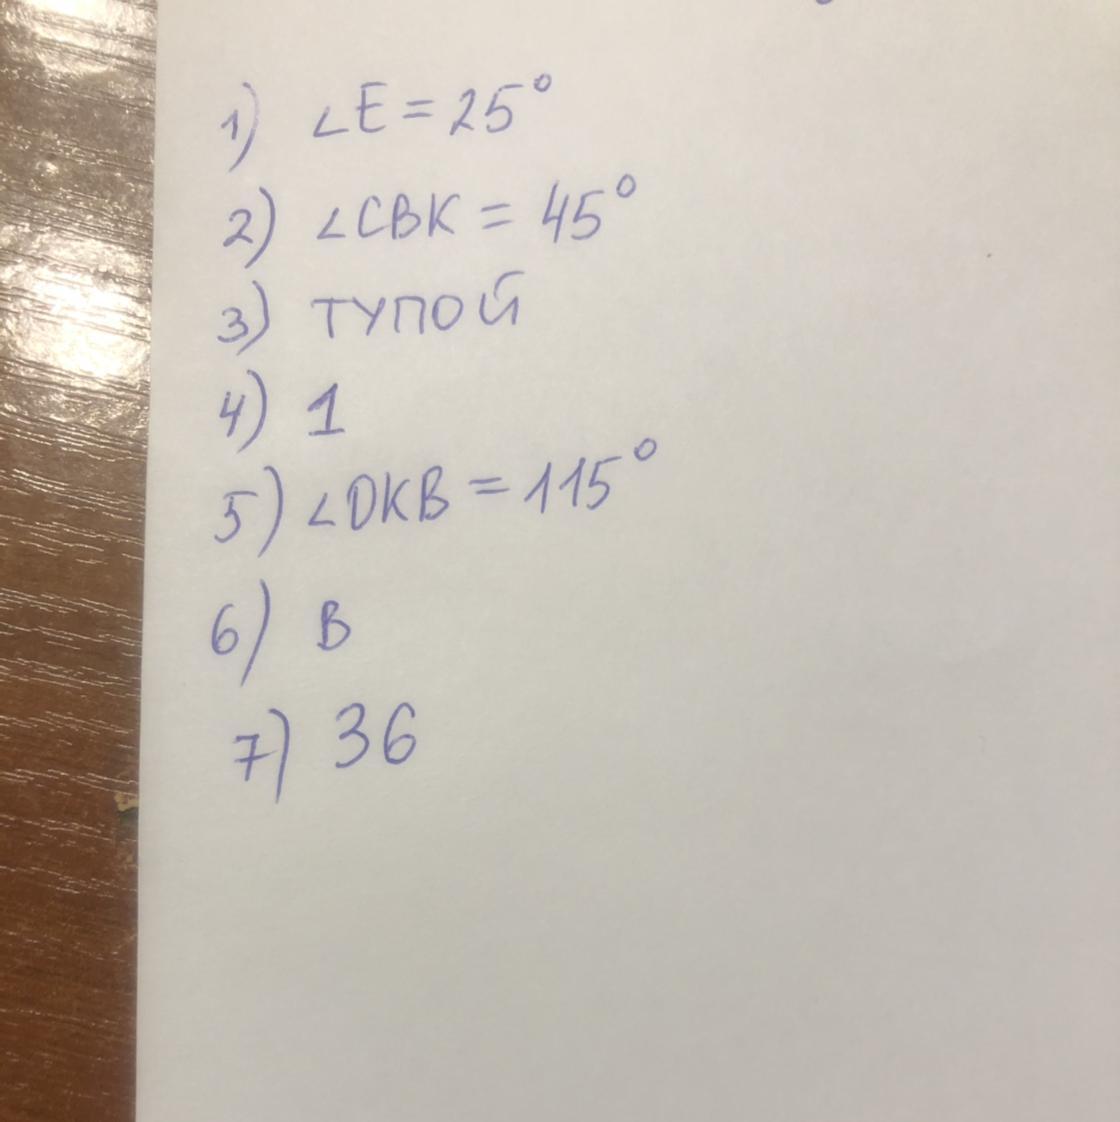 1) ∠E = 25°
2) ∠CBK = 45°
3) ТУПОЙ
4) 1
5) ∠DKB = 115°
6) В
7) 36